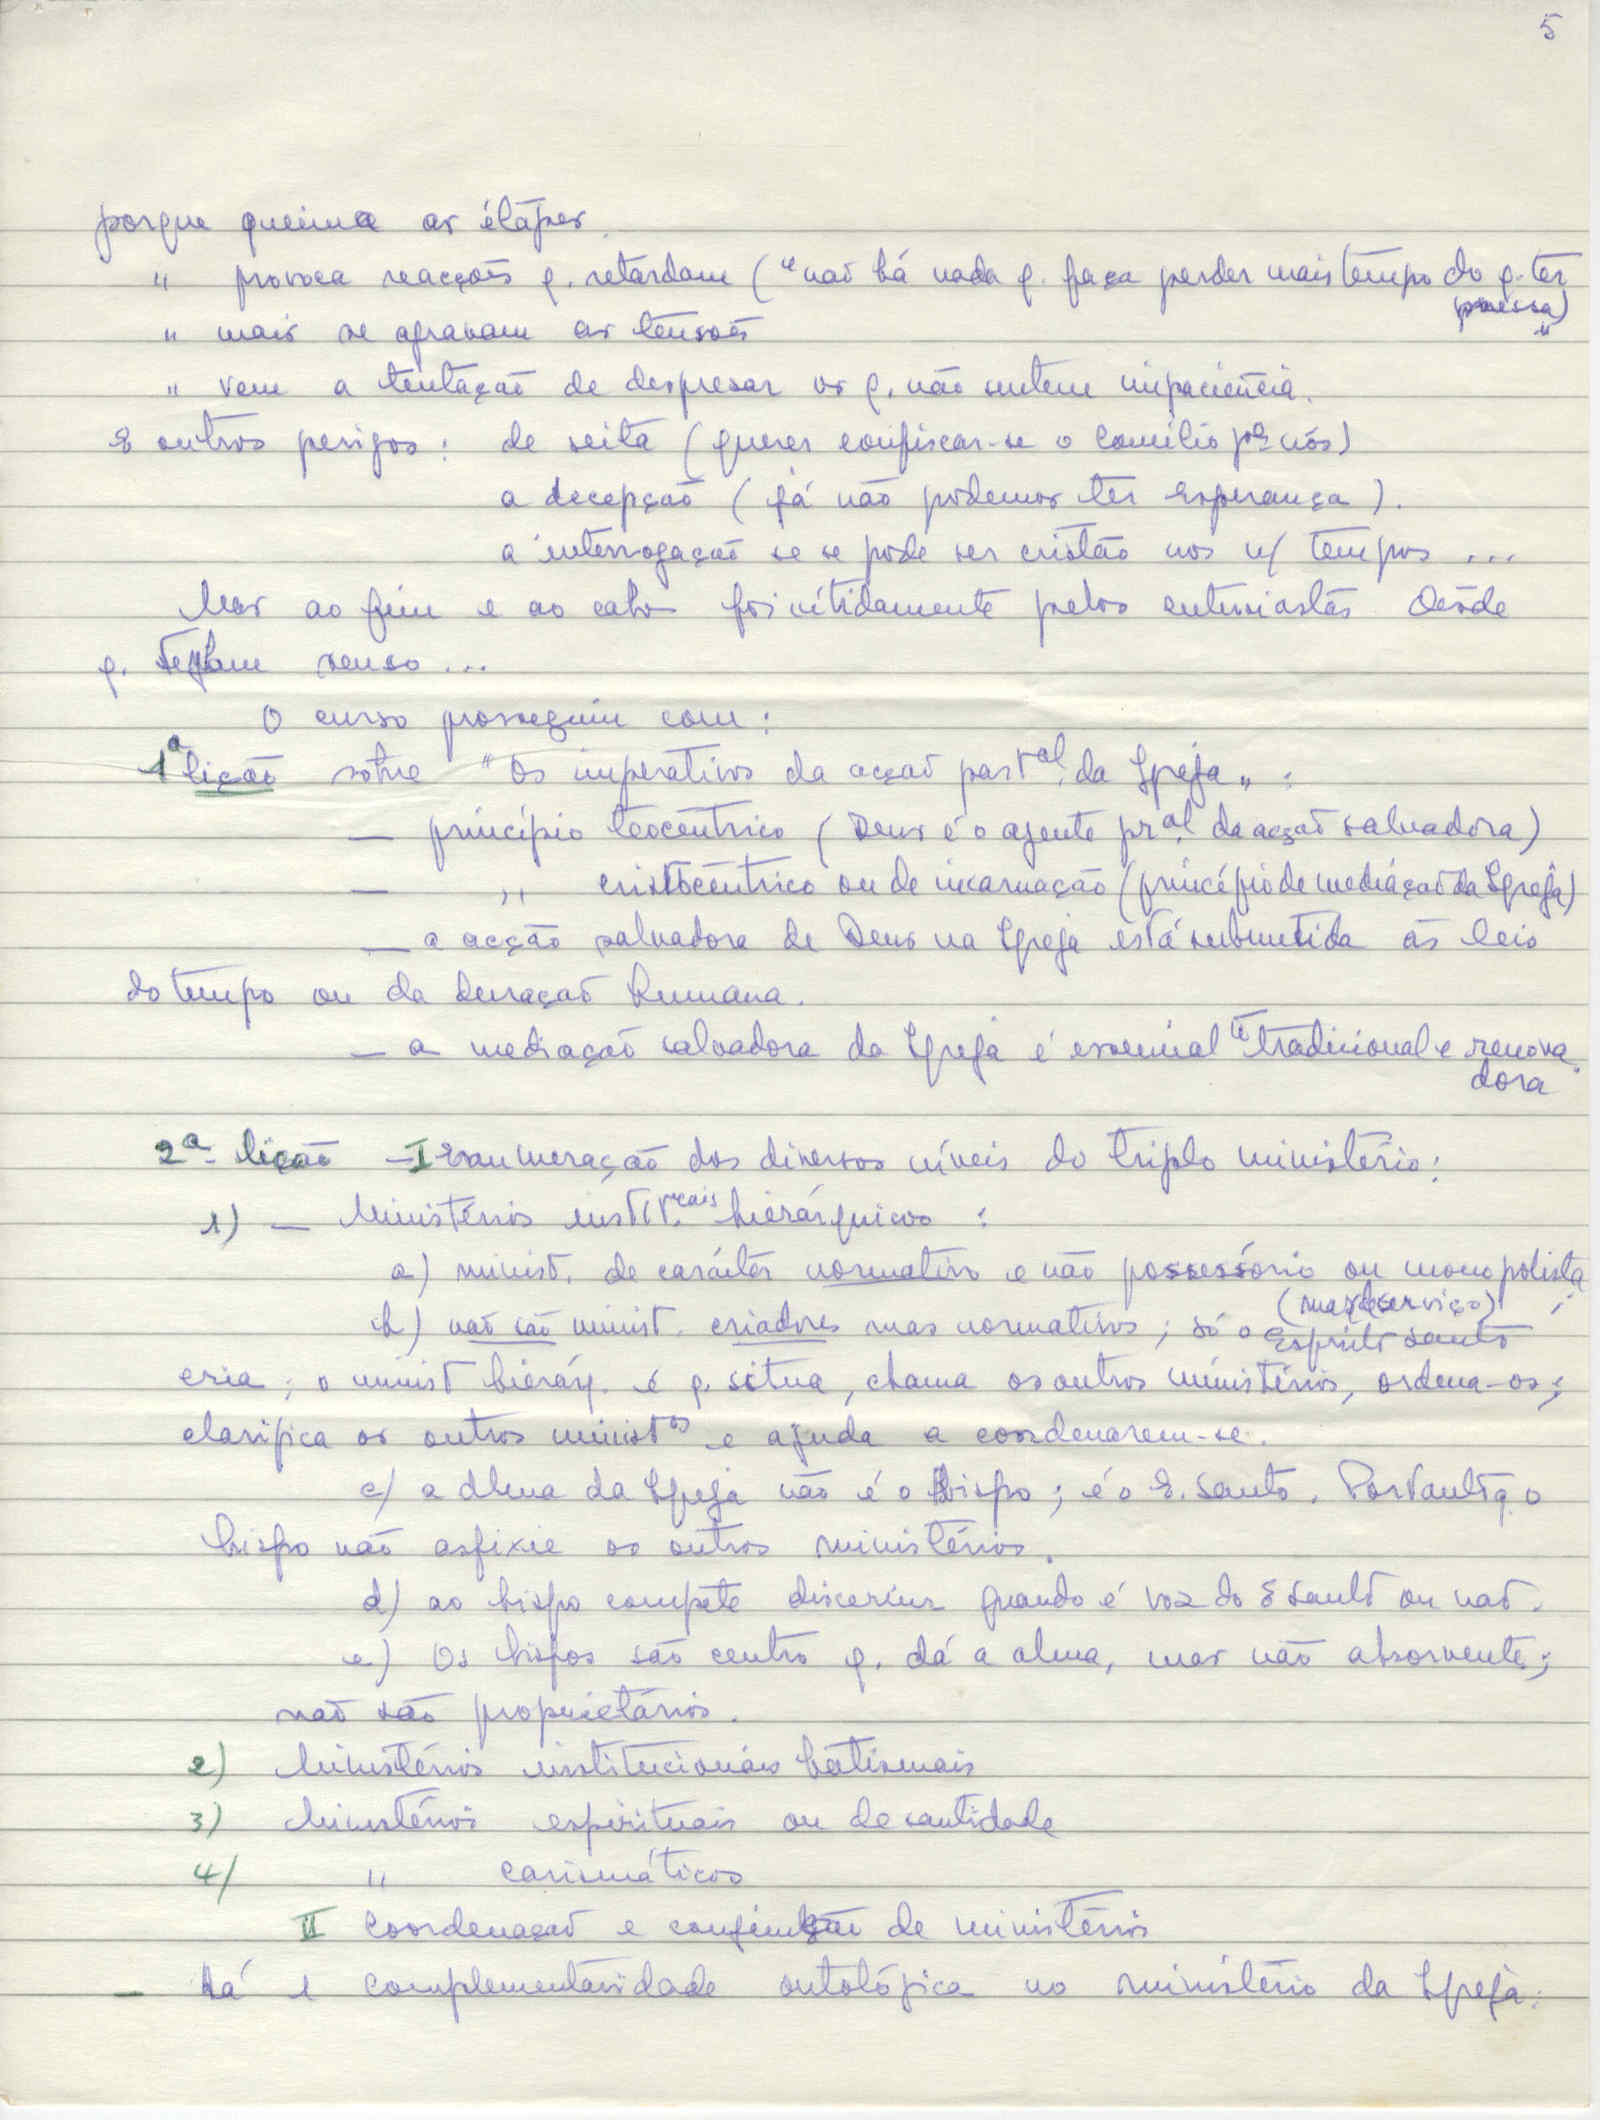 5
porque queima as étapes.
" provoca reacções q. retardam ("não há nada q. faça perder mais tempo do q. ter
pressa)
"
" mais se agravam as tensões
" vem a tentação de despresar os q. não sentem impaciência.
E outros perigos: de seita (querer confiscar-se o Concílio pª nós)
a decepção (já não podemos ter esperança).
a interrogação se se pode ser cristão nos n/ tempos ...
Mas ao fim e ao cabo foi nítidamente pelos entusiastas. Desde
q. tenham senso ...
O curso prosseguiu com:
1ª lição sobre "Os imperativos da acção past.al da Igreja":
— princípio teocêntrico (Deus é o agente pr.al da acção salvadora)
— ,, cristocêntrico ou de incarnação (princípio de mediação da Igreja)
— a acção salvadora de Deus na Igreja está submetida às leis
do tempo ou da duração humana.
— a mediação salvadora da Igreja é essencial te tradicional e renova
dora
2ª lição — I Enumeração dos diversos níveis do triplo ministério:
1) — Ministérios instit.cais hierárquicos:
a) minist. de carácter normativo e não possessório ou monopolista
(mas de serviço);
b) não são minist. criadores mas normativos; só o Espírito Santo
cria; o minist hierárq. é q. situa, chama os outros ministérios, ordena-os;
clarifica os outros minist.os e ajuda a coordenarem-se.
c) a alma da Igreja não é o Bispo; é o E. Santo. Portanto q. o
bispo não asfixie os outros ministérios.
d) ao bispo compete discernir quando é voz do E Santo ou não.
e) Os bispos são centro q. dá a alma, mas não absorvente;
não são proprietários.
2) Ministérios institucionais batismais
3) Ministérios espirituais ou de santidade
4) " carismáticos
II Coordenação e conjunção de ministérios
— Há 1 complementaridade ontológica no ministério da Igreja: